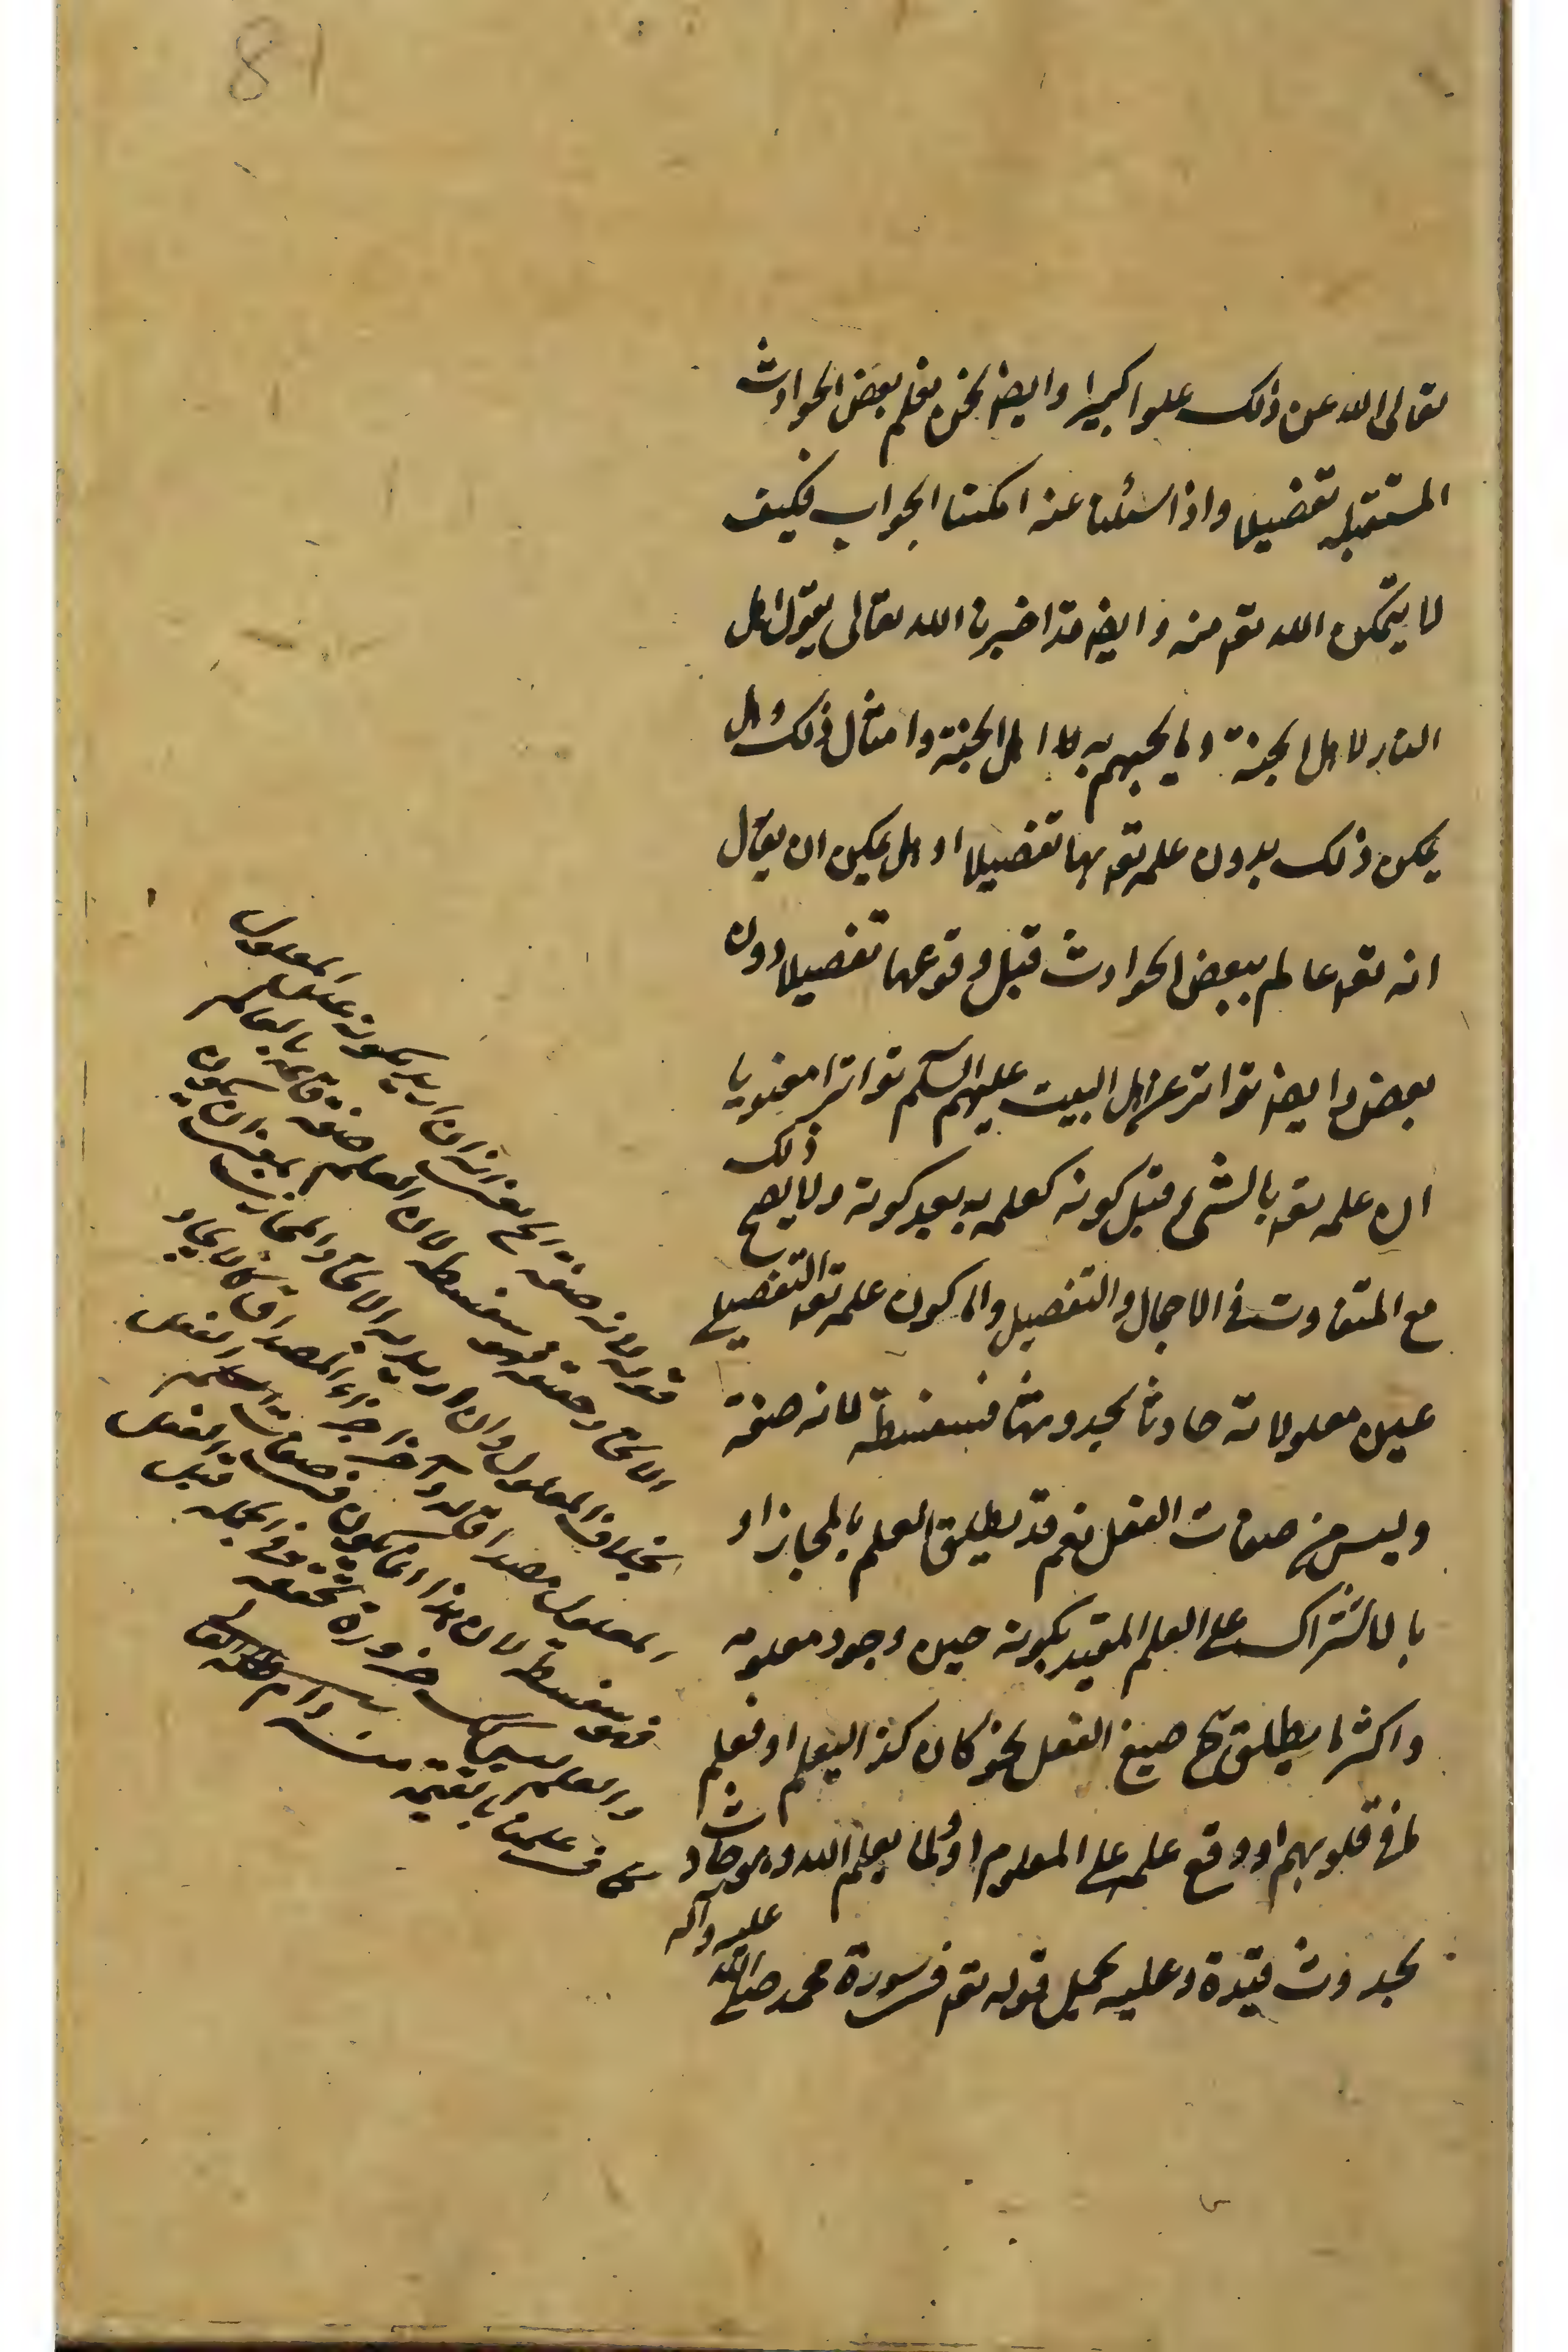 81
تعالى الله عن ذلك علوا كبيرا وايضا نحن نعلم بعض الحوادث
المستقبله تفضيلا واذا سئلنا عنه امكننا الجواب فكيف
لا يتمكن الله تعم منه وايضا قد اخبرنا الله تعالى بقول اهل
النار لاهل الجنة ولما يجيبهم به اهل الجنة وامثال ذلك وهل
يمكن ذلك بدون علمه تعم بها تفضيلا او هل يمكن ان يقال
انه تعم عالم ببعض الحوادث قبل وقوعها تفصيلا دون
بعض وايضا تواتر عن اهل البيت عليهم السلم تواترا معنويا
ان علمه تعم بالشئ قبل كونه كعلمه به بعد كونه ولا يصح ذلك
مع التفاوت في الاجمال والتفصيل واما كون علمه تعم التفصيلي
عين معلولاته حادثا بحدوثها فسفسطة لانه صفة
وليس من صفات الفعل نعم قد يطلق العلم بالمجاز او
بالاشتراك على العلم المقيد بكونه حين وجود معلومه
واكثر ما يطلق صيغ الفعل نحو كان كذا ليعلم او فعلم
ما في قلوبهم او وقع علمه على المعلوم او لما يعلم الله وهو حادث
بحدوث قيده وعليه يحمل قوله تعم في سورة محمد صلى الله عليه وآله
قوله لانه صفة الخ يعني انه ان اريد بكونه عين المعلول
الاتحاد حقيقة فهو سفسطه لان العلم صفة قائمه بالعالم
بخلاف المعلول وان اريد به الاتحاد المجازي بمعنى ان يكون
المعلول مصداقا له وآخر اجزاء المصداق كالايجاد
فهو سفسطة لان هذا انما يكون في صفات الفعل
والعلم ليس كك ضرورة تحققه في الجمله قبل الفعل
كما في علمنا بالقيمه منه دام ظله العالي